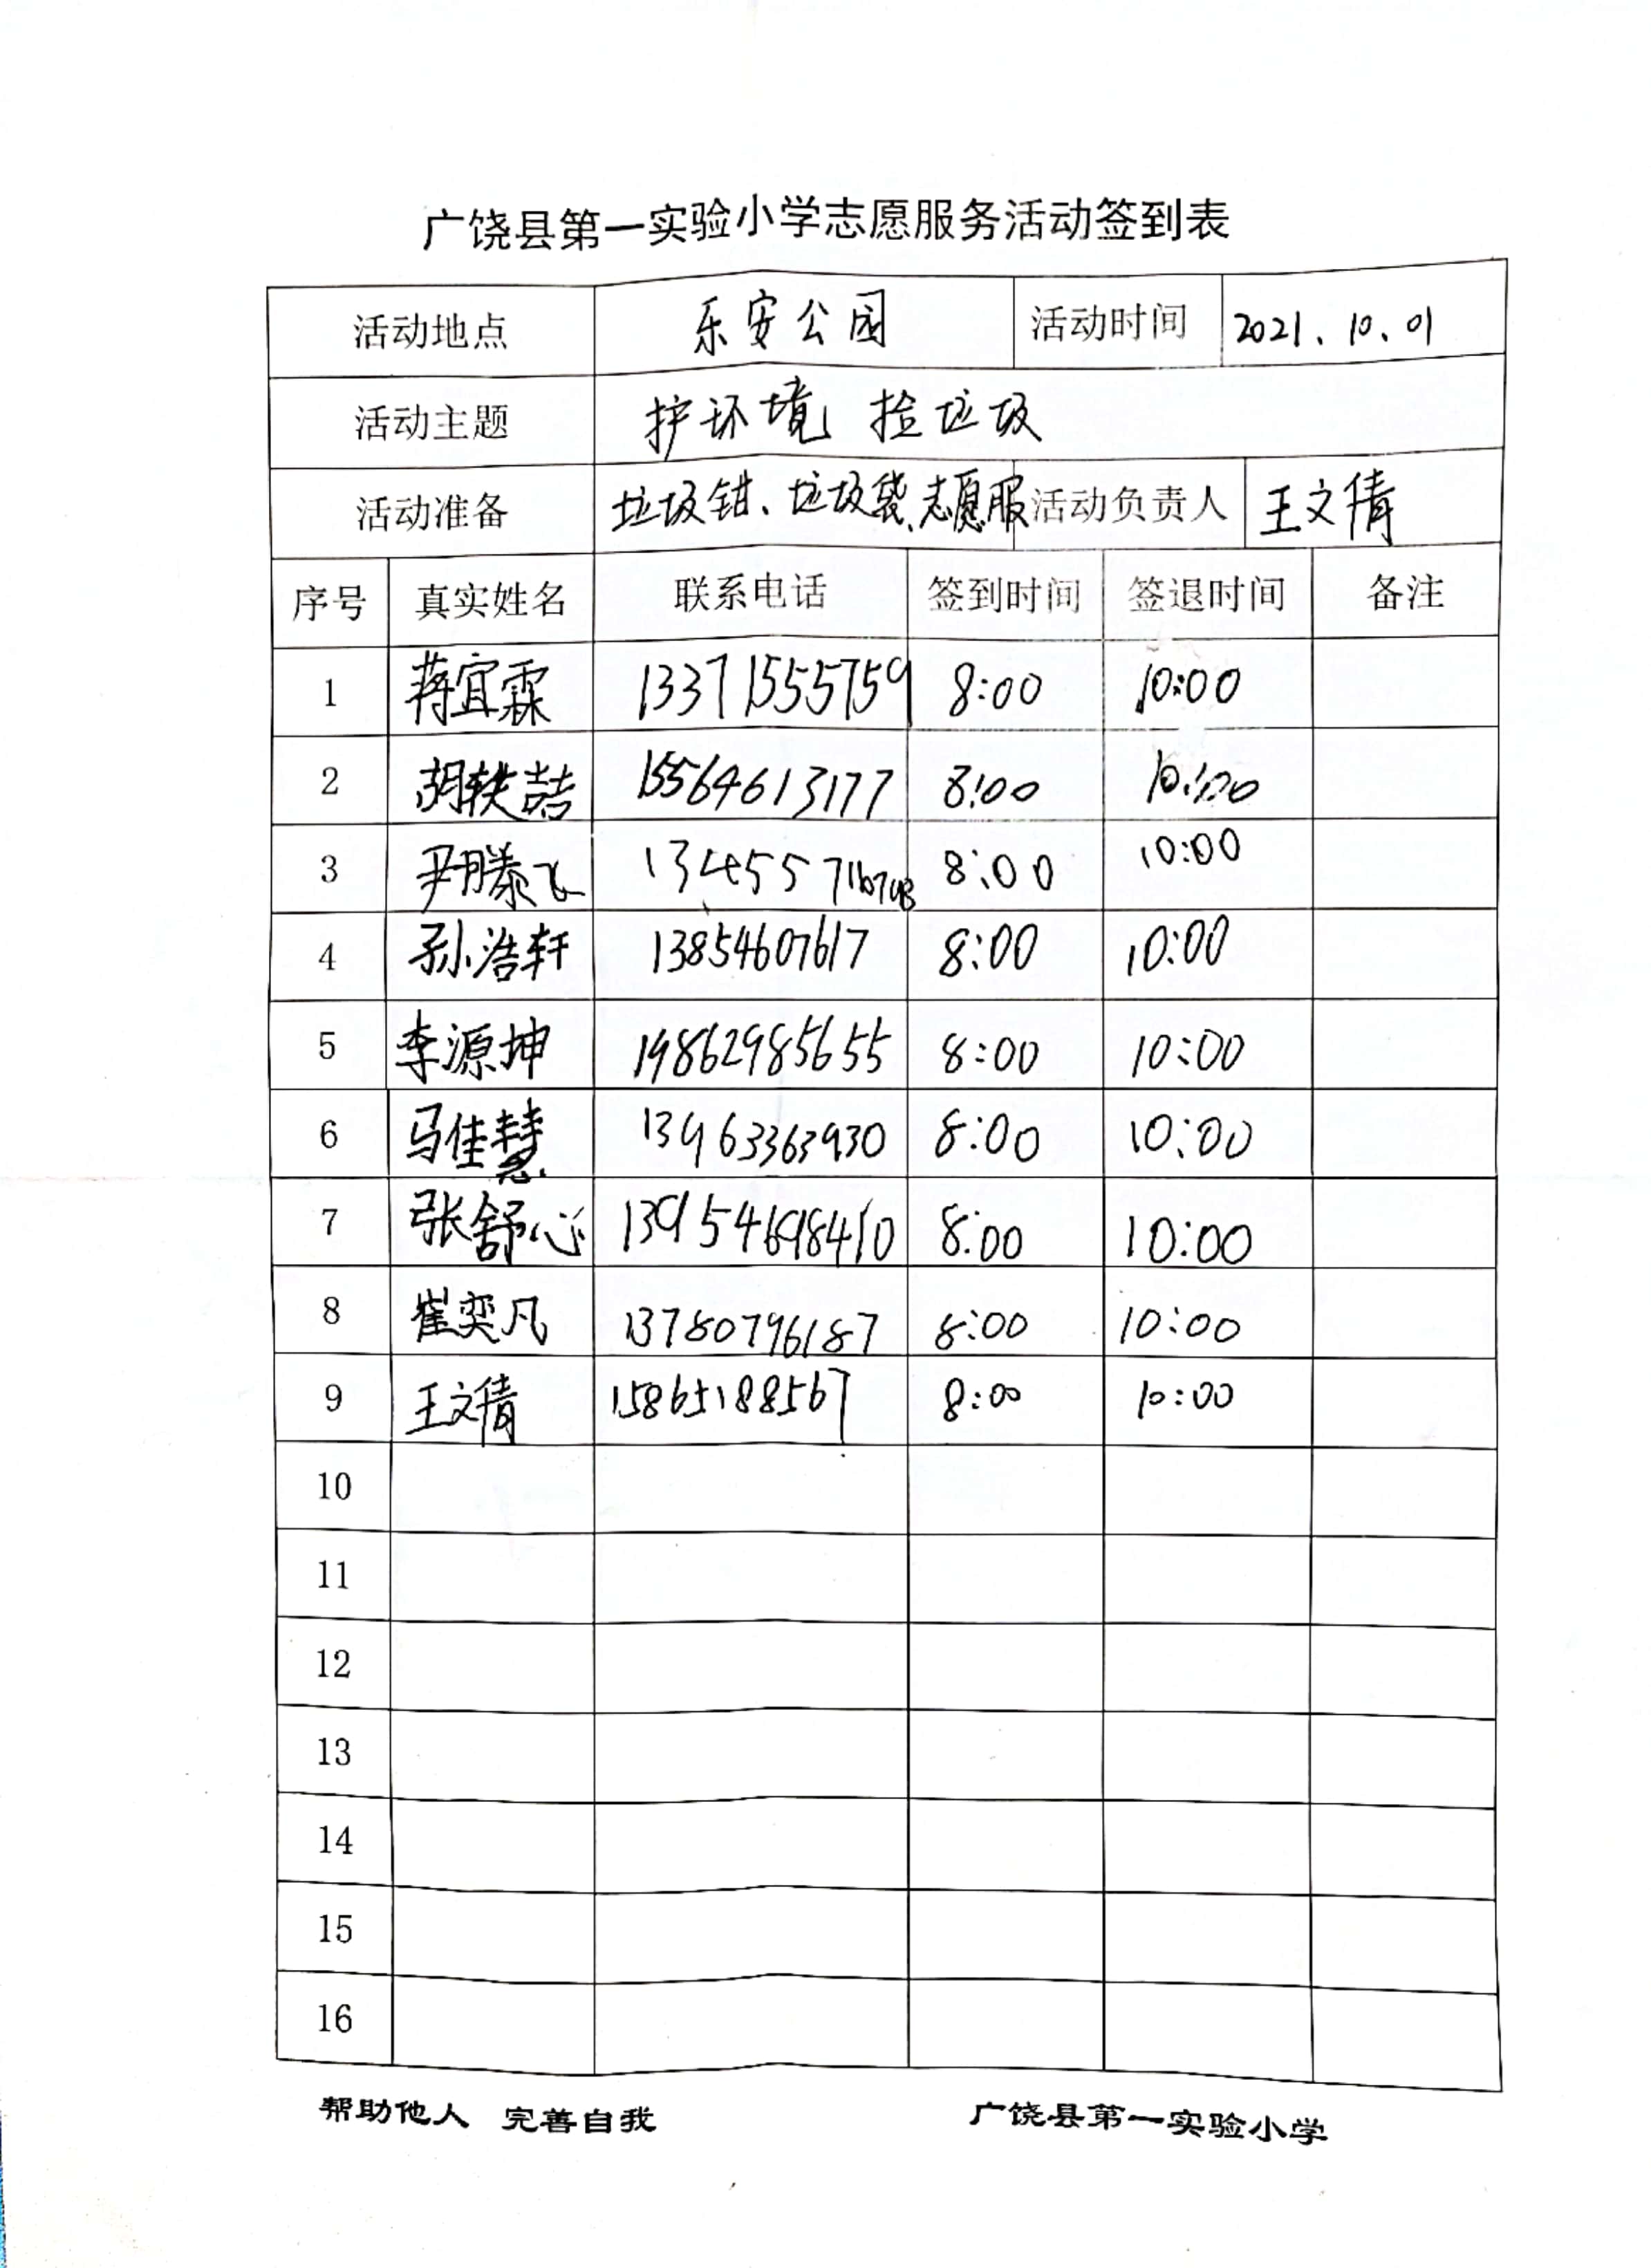 广饶县第一实验小学志愿服务活动签到表
活动地点 乐安公园 活动时间 2021.10.01
活动主题 护环境 捡垃圾
活动准备 垃圾钳、垃圾袋、志愿服 活动负责人 王文倩
序号 真实姓名 联系电话 签到时间 签退时间 备注
1 蒋宜霖 13371555759 8:00 10:00
2 胡轶喆 15564613177 8:00 10:00
3 尹滕飞 8:00 10:00
4 孙浩轩 13854607617 8:00 10:00
5 李源坤 19862985655 8:00 10:00
6 马佳慧 13963363930 8:00 10:00
7 张舒心 139154698410 8:00 10:00
8 崔奕凡 13780796187 8:00 10:00
9 王文倩 15865188567 8:00 10:00
10
11
12
13
14
15
16
帮助他人 完善自我 广饶县第一实验小学